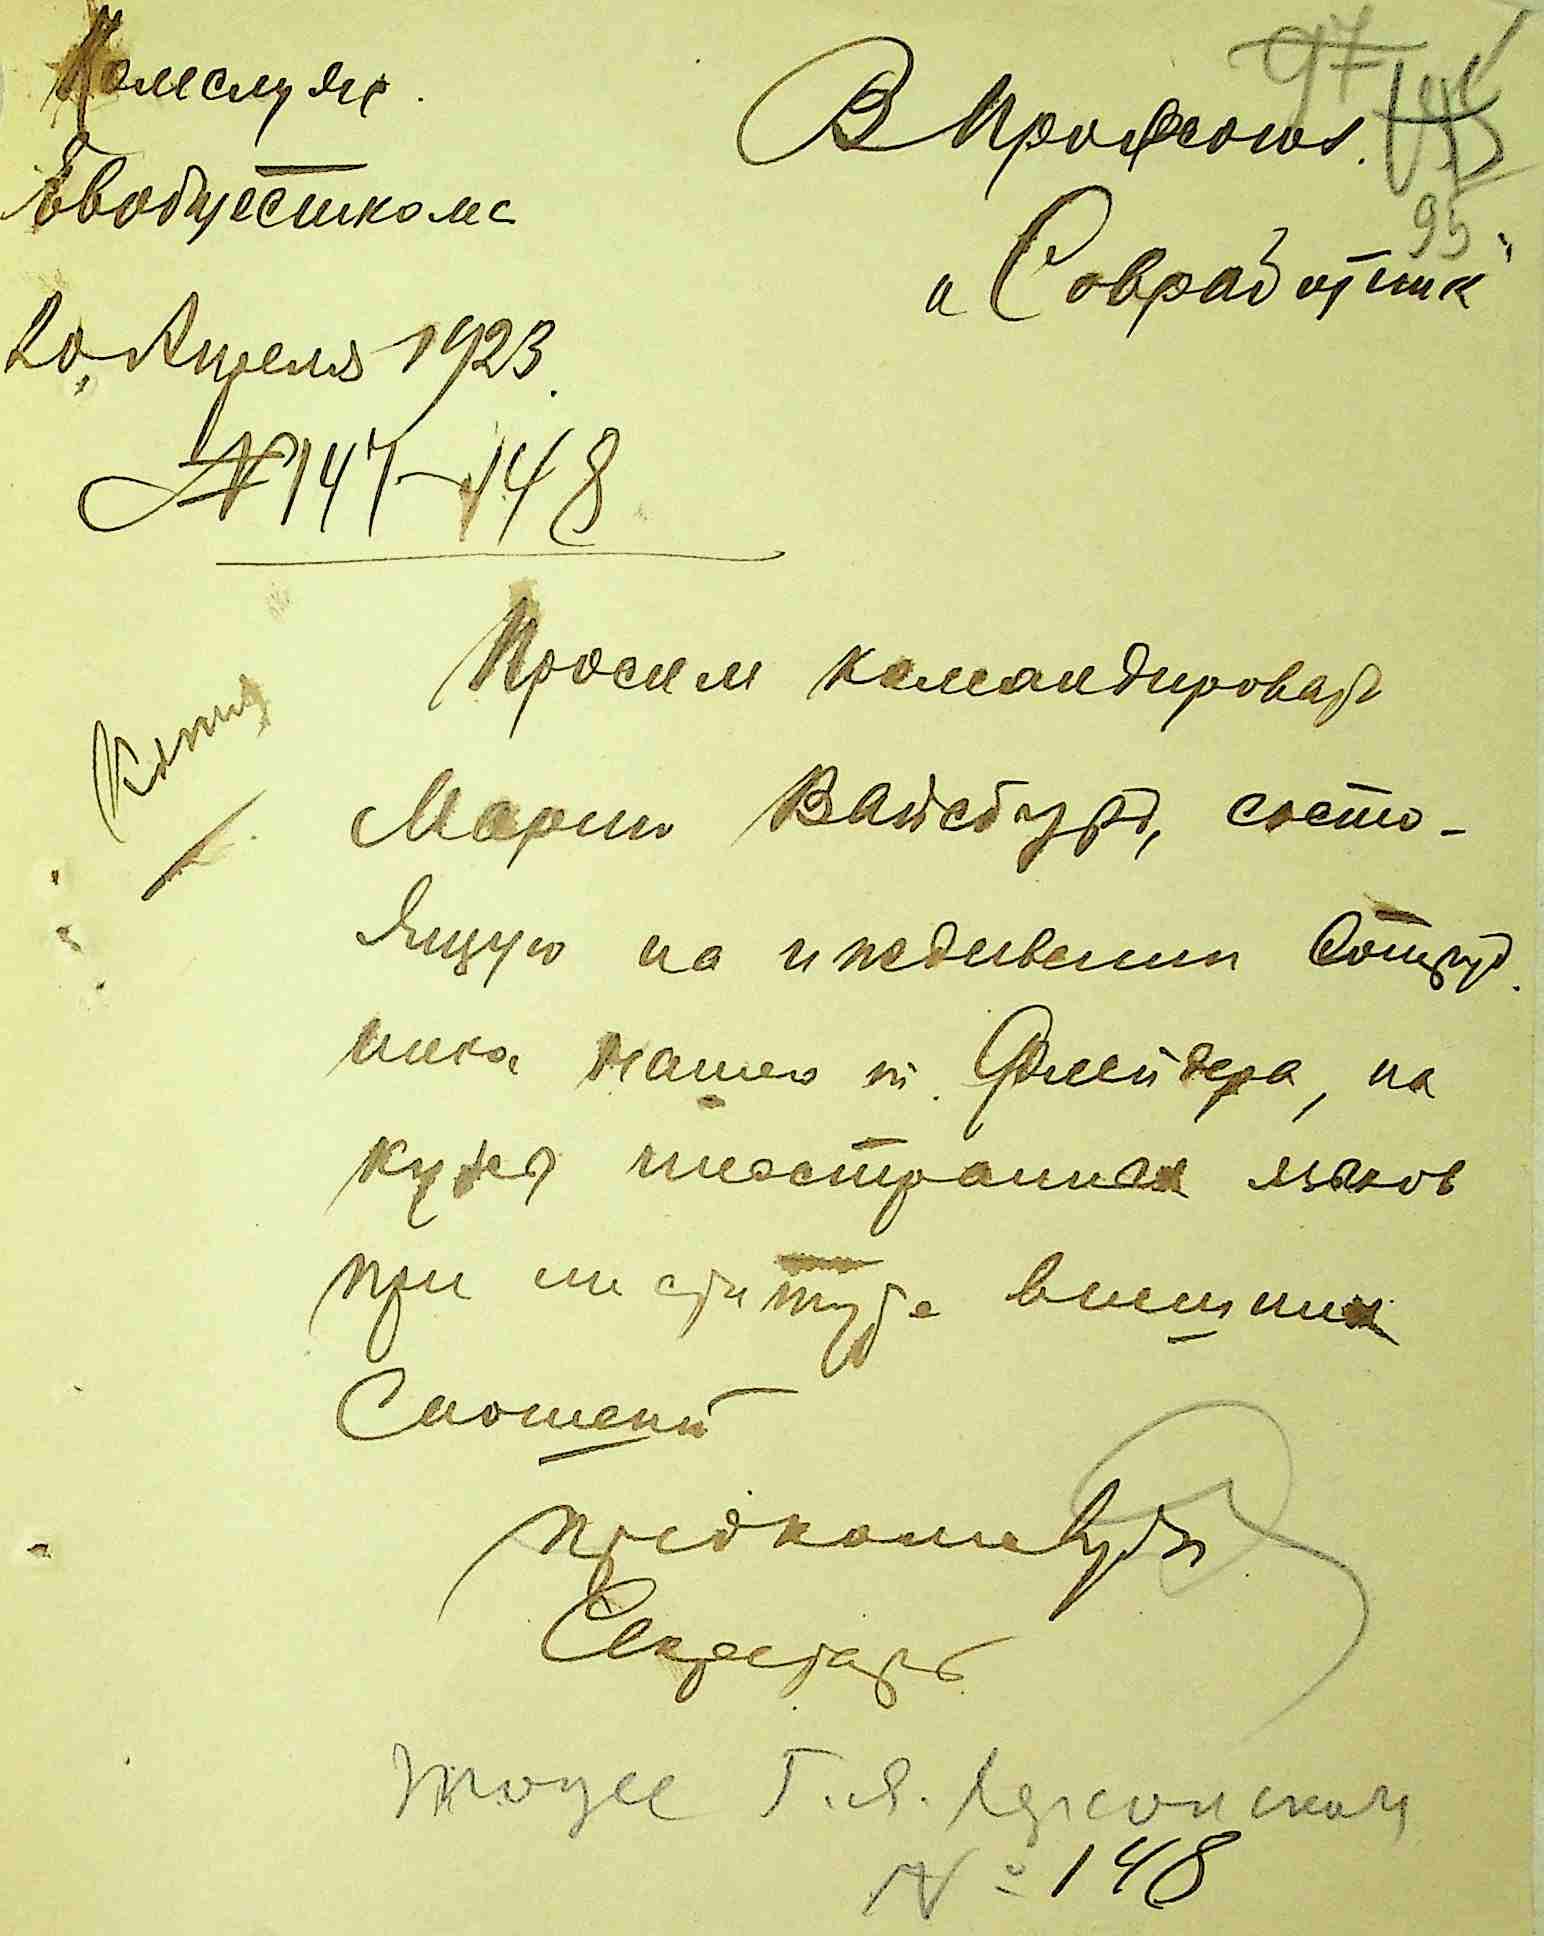 Комслуж.
Евобщесткома
20 Апреля 1923.
№147-148
В Профсоюз
"Совработник"
97
95
Копия
Просим командировать
Марию Вайсбурд, состо-
ящую на иждивении Сотруд.
ника нашего т. Флейдера, на
курсы иностранных языков
при институте внешних
Сношений
Предкомслуж
Секретарь
тоже Г.Я. Херсонской
№ 148